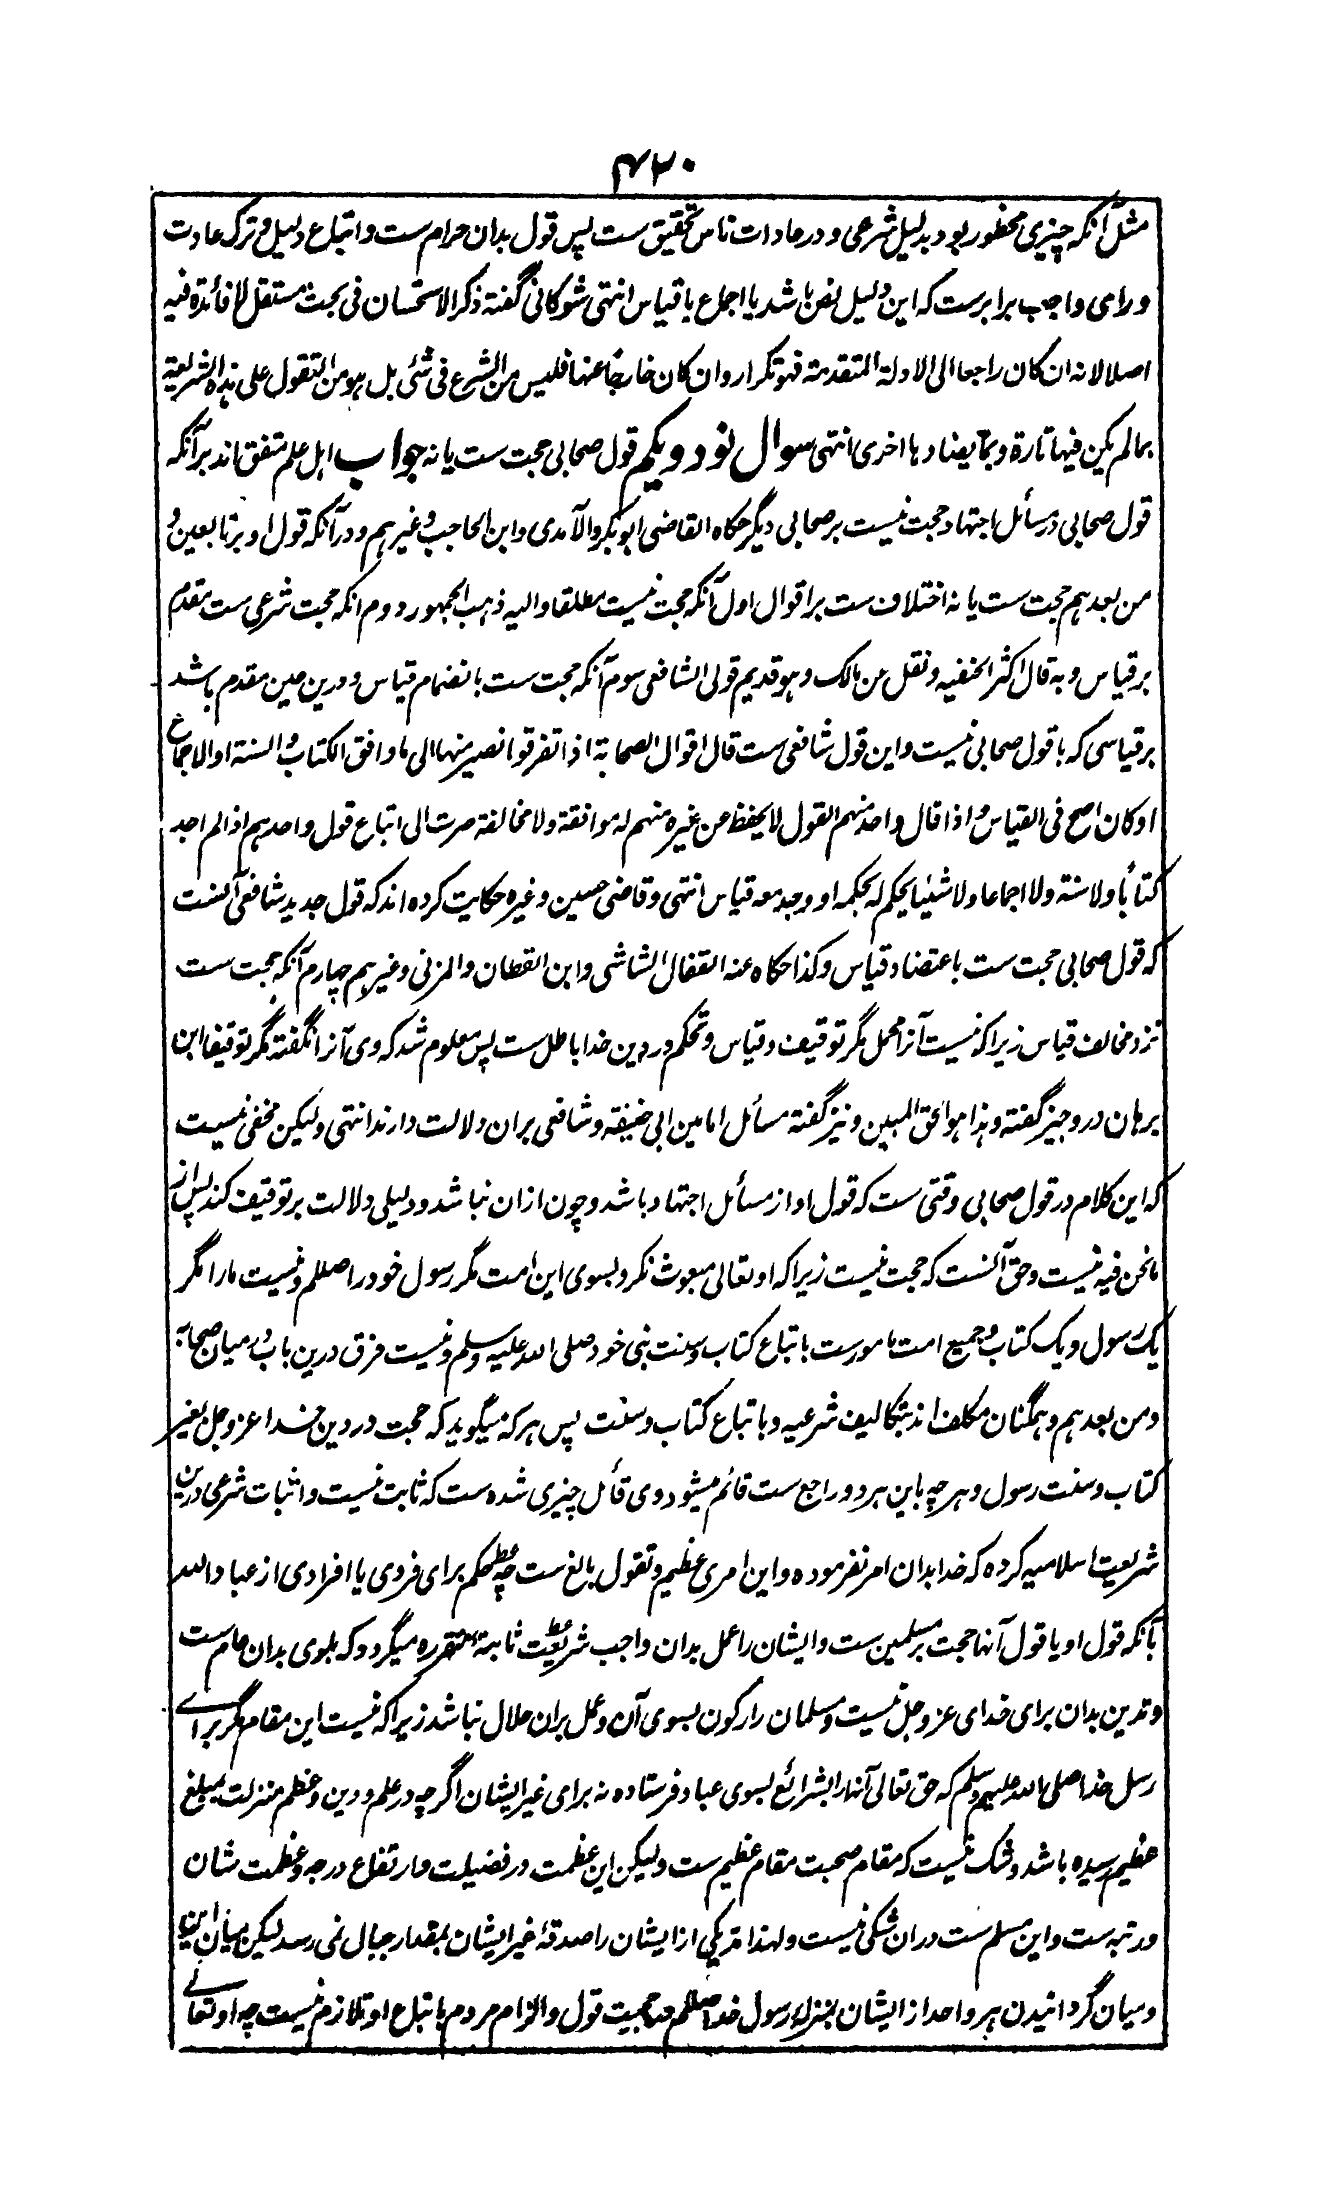 ۴۲۰
مثل آنکه چیزی محظور بود بدلیل شرعی و در عادات ناس تحقیق ست پس قول بدان حرام ست و اتباع دلیل و ترک عادت
و رای واجب برابرست که این دلیل نص باشد یا اجماع یا قیاس انتهی شوکانی گفته ذکر الاستحسان فی بحث مستقل لا فائدة فیه
اصلا لانه ان کان راجعا الی الادلة المتقدمة فهو تکرار و ان کان خارجًا عنها فلیس من الشرع فی شئ بل هو من التقول علی هذه الشریعة
بما لم یکن فیها تارة و بما یضادها اخری انتهی سوال نود و یکم قول صحابی حجت ست یا نه جواب اهل علم متفق اند بر آنکه
قول صحابی در مسائل اجتهاد حجت نیست بر صحابی دیگر حکاه القاضی ابو بکر و الآمدی و ابن الحاجب و غیرهم و در آنکه قول او بر تابعین و
من بعدهم حجت ست یا نه اختلاف ست بر اقوال اول آنکه حجت نیست مطلقا و الیه ذهب الجمهور دوم آنکه حجت شرعی ست مقدم
بر قیاس و به قال اکثر الحنفیه و نقل عن مالک و هو قدیم قولی الشافعی سوم آنکه حجت ست بانضمام قیاس و درین حین مقدم باشد
بر قیاسی که با قول صحابی نیست و این قول شافعی ست قال اقوال الصحابة اذا تفرقوا نصیر منها الی ما وافق الکتاب و السنة او الاجماع
او کان اصح فی القیاس و اذا قال واحد منهم القول لا یحفظ عن غیره منهم له موافقة و لا مخالفة صرت الی اتباع قول واحدهم اذا لم اجد
کتابًا و لا سنة و لا اجماعا و لا شیئا یحکم له بحکمه او وجد معه قیاس انتهی و قاضی حسین و غیره حکایت کرده اند که قول جدید شافعی آنست
که قول صحابی حجت ست باعتضاد قیاس و کذا حکاه عنه القفال الشاشی و ابن القطان و المزنی و غیرهم چهارم آنکه حجت ست
نزد مخالف قیاس زیرا که نیست آنرا محمل مگر توقیف و قیاس و تحکم در دین خدا باطل ست پس معلوم شد که وی آنرا نگفته مگر توقیفا ابن
برهان در وجیز گفته و هذا هو الحق المبین و نیز گفته مسائل امامین ابی حنیفه و شافعی بران دلالت دارند انتهی ولیکن مخفی نیست
که این کلام در قول صحابی وقتی ست که قول او از مسائل اجتهاد باشد و چون ازان نباشد و دلیلی دلالت بر توقیف کند پس از
ما نحن فیه نیست و حق آنست که حجت نیست زیرا که او تعالی مبعوث نکرد بسوی این امت مگر رسول خود را صللم و نیست ما را مگر
یک رسول و یک کتاب و جمیع امت مامورست باتباع کتاب و سنت نبی خود صلی الله علیه وسلم و نیست فرق درین باب در میان صحابه
و من بعدهم و همگنان مکلف اند بتکالیف شرعیه و باتباع کتاب و سنت پس هر که میگوید که حجت در دین خدا عز و جل بغیر
کتاب و سنت رسول و هر چه باین هر دو راجع ست قائم میشود وی قائل چیزی شده ست که ثابت نیست و اثبات شرعی درین
شریعت اسلامیه کرده که خدا بدان امر نفرموده و این امری عظیم و تقول بالغ ست چه حکم برای فردی یا افرادی از عباد الله
بآنکه قول او یا قول آنها حجت بر مسلمین ست و ایشان را عمل بدان واجب شریعت ثابته متقرره میگردد که بلوی بدان عام ست
و تدین بدان برای خدای عز و جل نیست و مسلمان را رکون بسوی آن و عمل بران حلال نباشد زیرا که نیست این مقام مگر براے
رسل خدا صلی الله علیهم وسلم که حق تعالی آنها را بشرائع بسوی عباد فرستاده نه برای غیر ایشان اگر چه در علم و دین و عظم منزلت بمبلغ
عظیم رسیده باشد و شک نیست که مقام صحبت مقام عظیم ست ولیکن این عظمت در فضیلت و ارتفاع درجه و عظمت شان
و رتبه ست و این مسلم ست دران شکی نیست و لهذا مد یکی از ایشان را صدقهٔ غیر ایشان بمقدار جبال نمی رسد لیکن میان این
و میان گردانیدن هر واحد از ایشان بمنزله رسول خدا صللم در حجیت قول و الزام مردم باتباع او تلازم نیست چه او تعالے